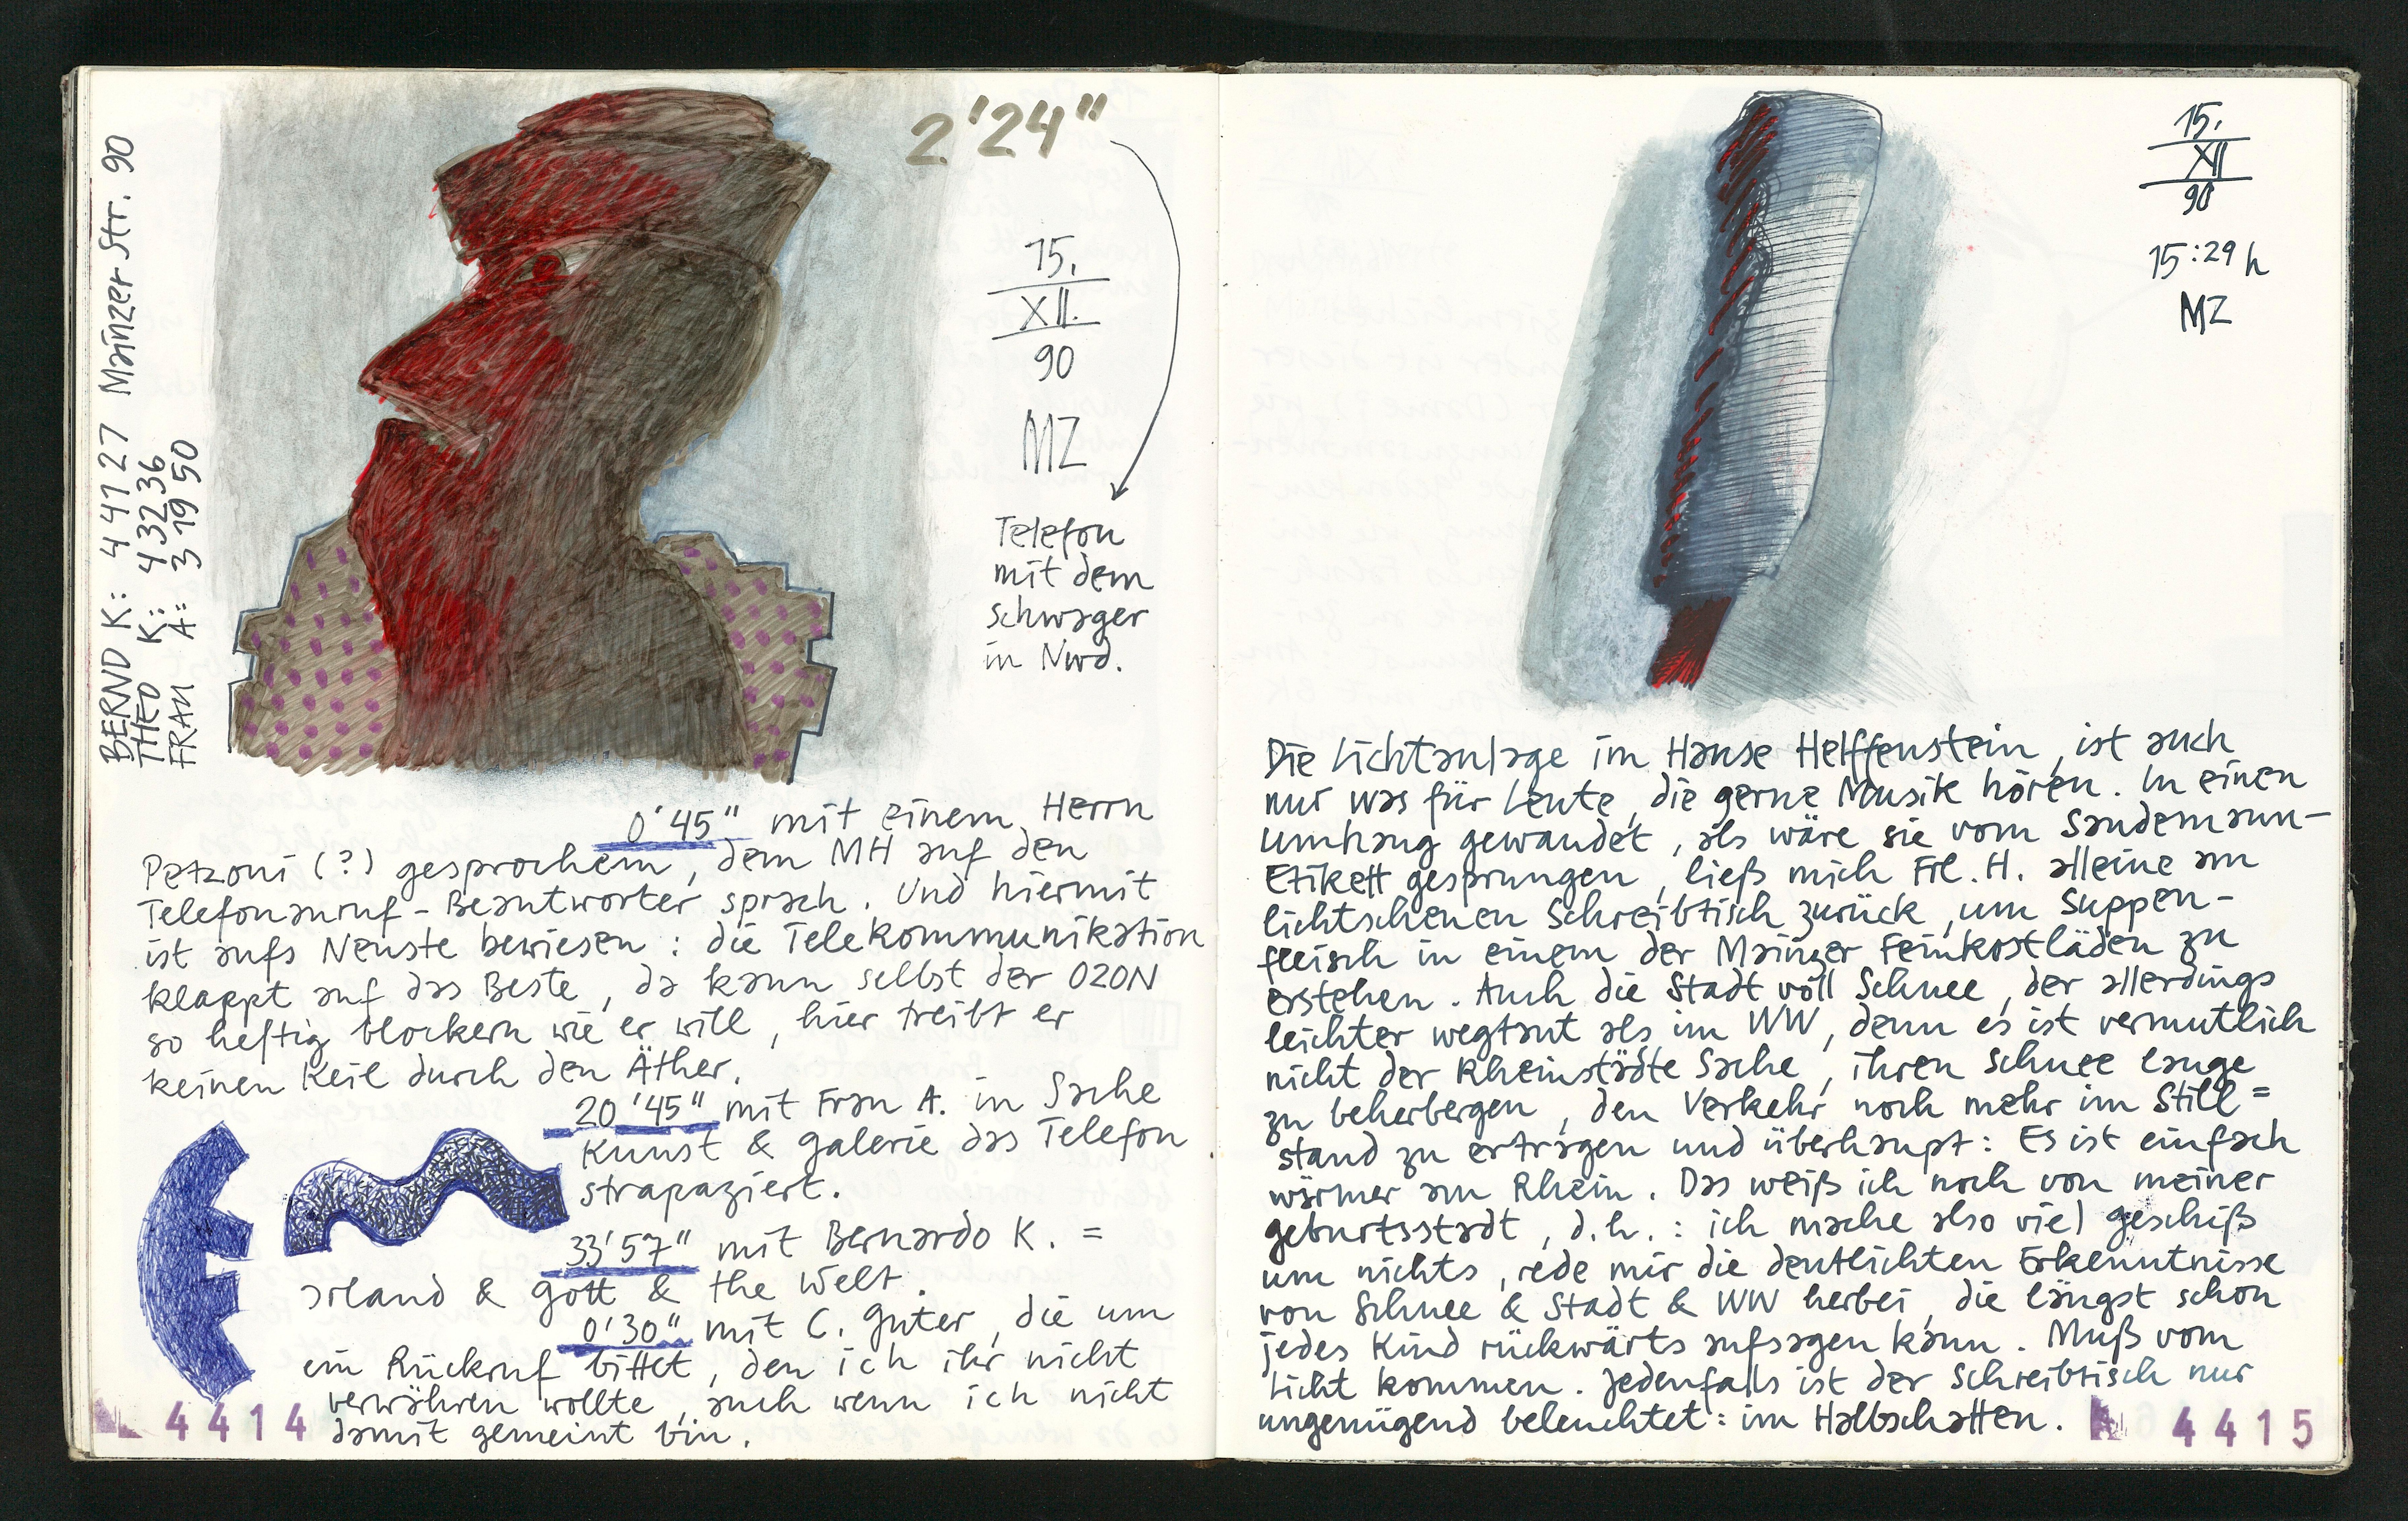 BERND K: 4 41 27 Mainzer Str. 90
THEO K: 4 32 36
FRAU A: 3 19 50
2'24"
15.
XII.
90
MZ
Telefon
mit dem
Schwager
in Nwd.
0'45" mit einem Herrn
Petzoni (?) gesprochen, dem MH auf den
Telefonanruf-Beantworter sprach. Und hiermit
ist aufs Neuste bewiesen: die Telekommunikation
klappt auf das Beste, da kann selbst der OZON
so heftig blockern wie er will, hier treibt er
keinen Keil durch den Äther.
20'45" mit Frau A. in Sache
Kunst & Galerie das Telefon
strapaziert.
33'57" mit Bernardo K. =
Irland & Gott & the Welt.
0'30" mit C. Guter, die um
ein Rückruf bittet, den ich ihr nicht
verwähren wollte, auch wenn ich nicht
damit gemeint bin.
4414
15.
XII
90
15:29 h
MZ
Die Lichtanlage im Hause Helffenstein, ist auch
nur was für Leute, die gerne Musik hören. In einen
Umhang gewandet, als wäre sie vom Sandemann-
Etikett gesprungen, ließ mich Frl. H. alleine am
lichtscheuen Schreibtisch zurück, um Suppen-
fleisch in einem der Mainzer Feinkostläden zu
erstehen. Auch die Stadt voll Schnee, der allerdings
leichter wegtaut als im WW, denn es ist vermutlich
nicht der Rheinstädte Sache, ihren Schnee lange
zu beherbergen, den Verkehr noch mehr im Still=
stand zu ertragen und überhaupt: Es ist einfach
wärmer am Rhein. Das weiß ich noch von meiner
Geburtsstadt, d.h.: ich mache also viel Geschiß
um nichts, rede mir die deutlichten Erkenntnisse
von Schnee & Stadt & WW herbei, die längst schon
jedes Kind rückwärts aufsagen kann. Muß vom
Licht kommen. Jedenfalls ist der Schreibtisch nur
ungenügend beleuchtet: im Halbschatten.
4415